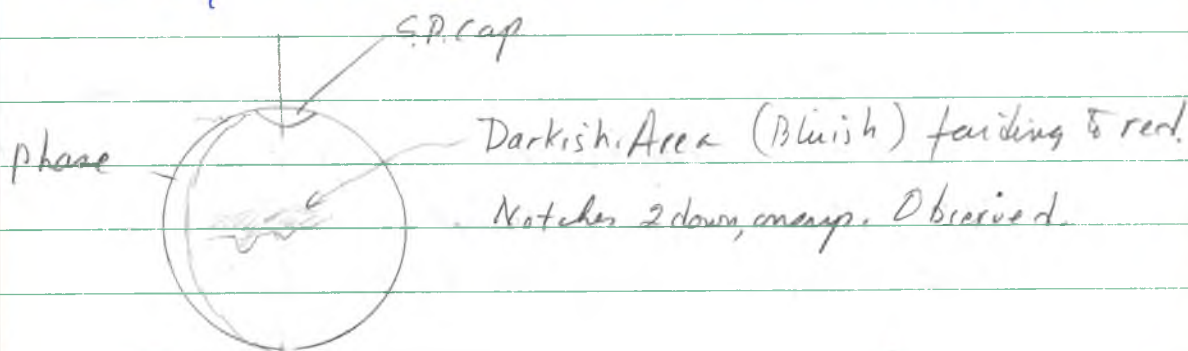 S.P. Cap
phase
Darkish Area (Bluish) faiding to red.
Notches 2 down, one up. Observed.